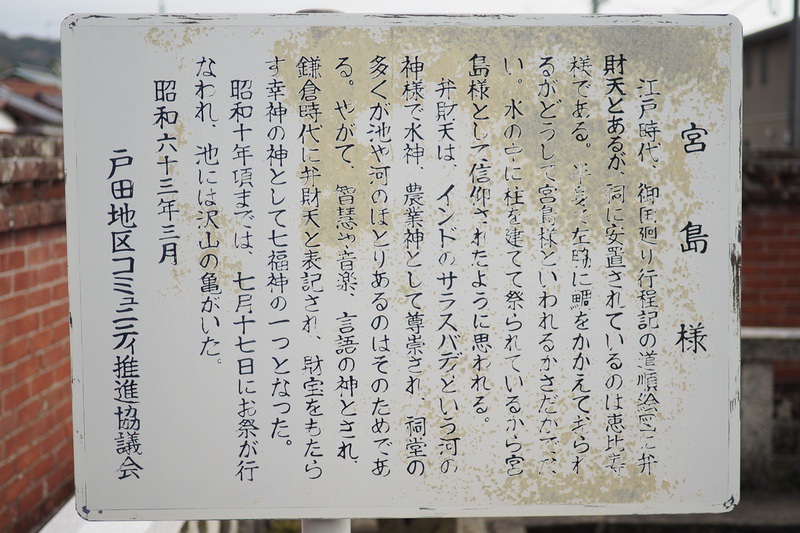 宮島様
江戸時代、御国廻り行程記の道順絵図に弁
財天とあるが、祠に安置されているのは恵比寿
様である。 左脇に鯛をかかえておられ
るがどうして宮島様といわれるかさだかでな
い。水の中に柱を建てて祭られているから宮
島様として信仰されたように思われる。
弁財天は、インドのサラスバティという河の
神様で水神、農業神として尊崇され、祠堂の
多くが池や河のほとりあるのはそのためであ
る。やがて、智慧や音楽、言語の神とされ、
鎌倉時代に弁財天と表記され、財宝をもたら
す幸神の神として七福神の一つとなった。
昭和十年頃までは、七月十七日にお祭が行
なわれ、池には沢山の亀がいた。
昭和六十三年三月
戸田地区コミュニティ推進協議会